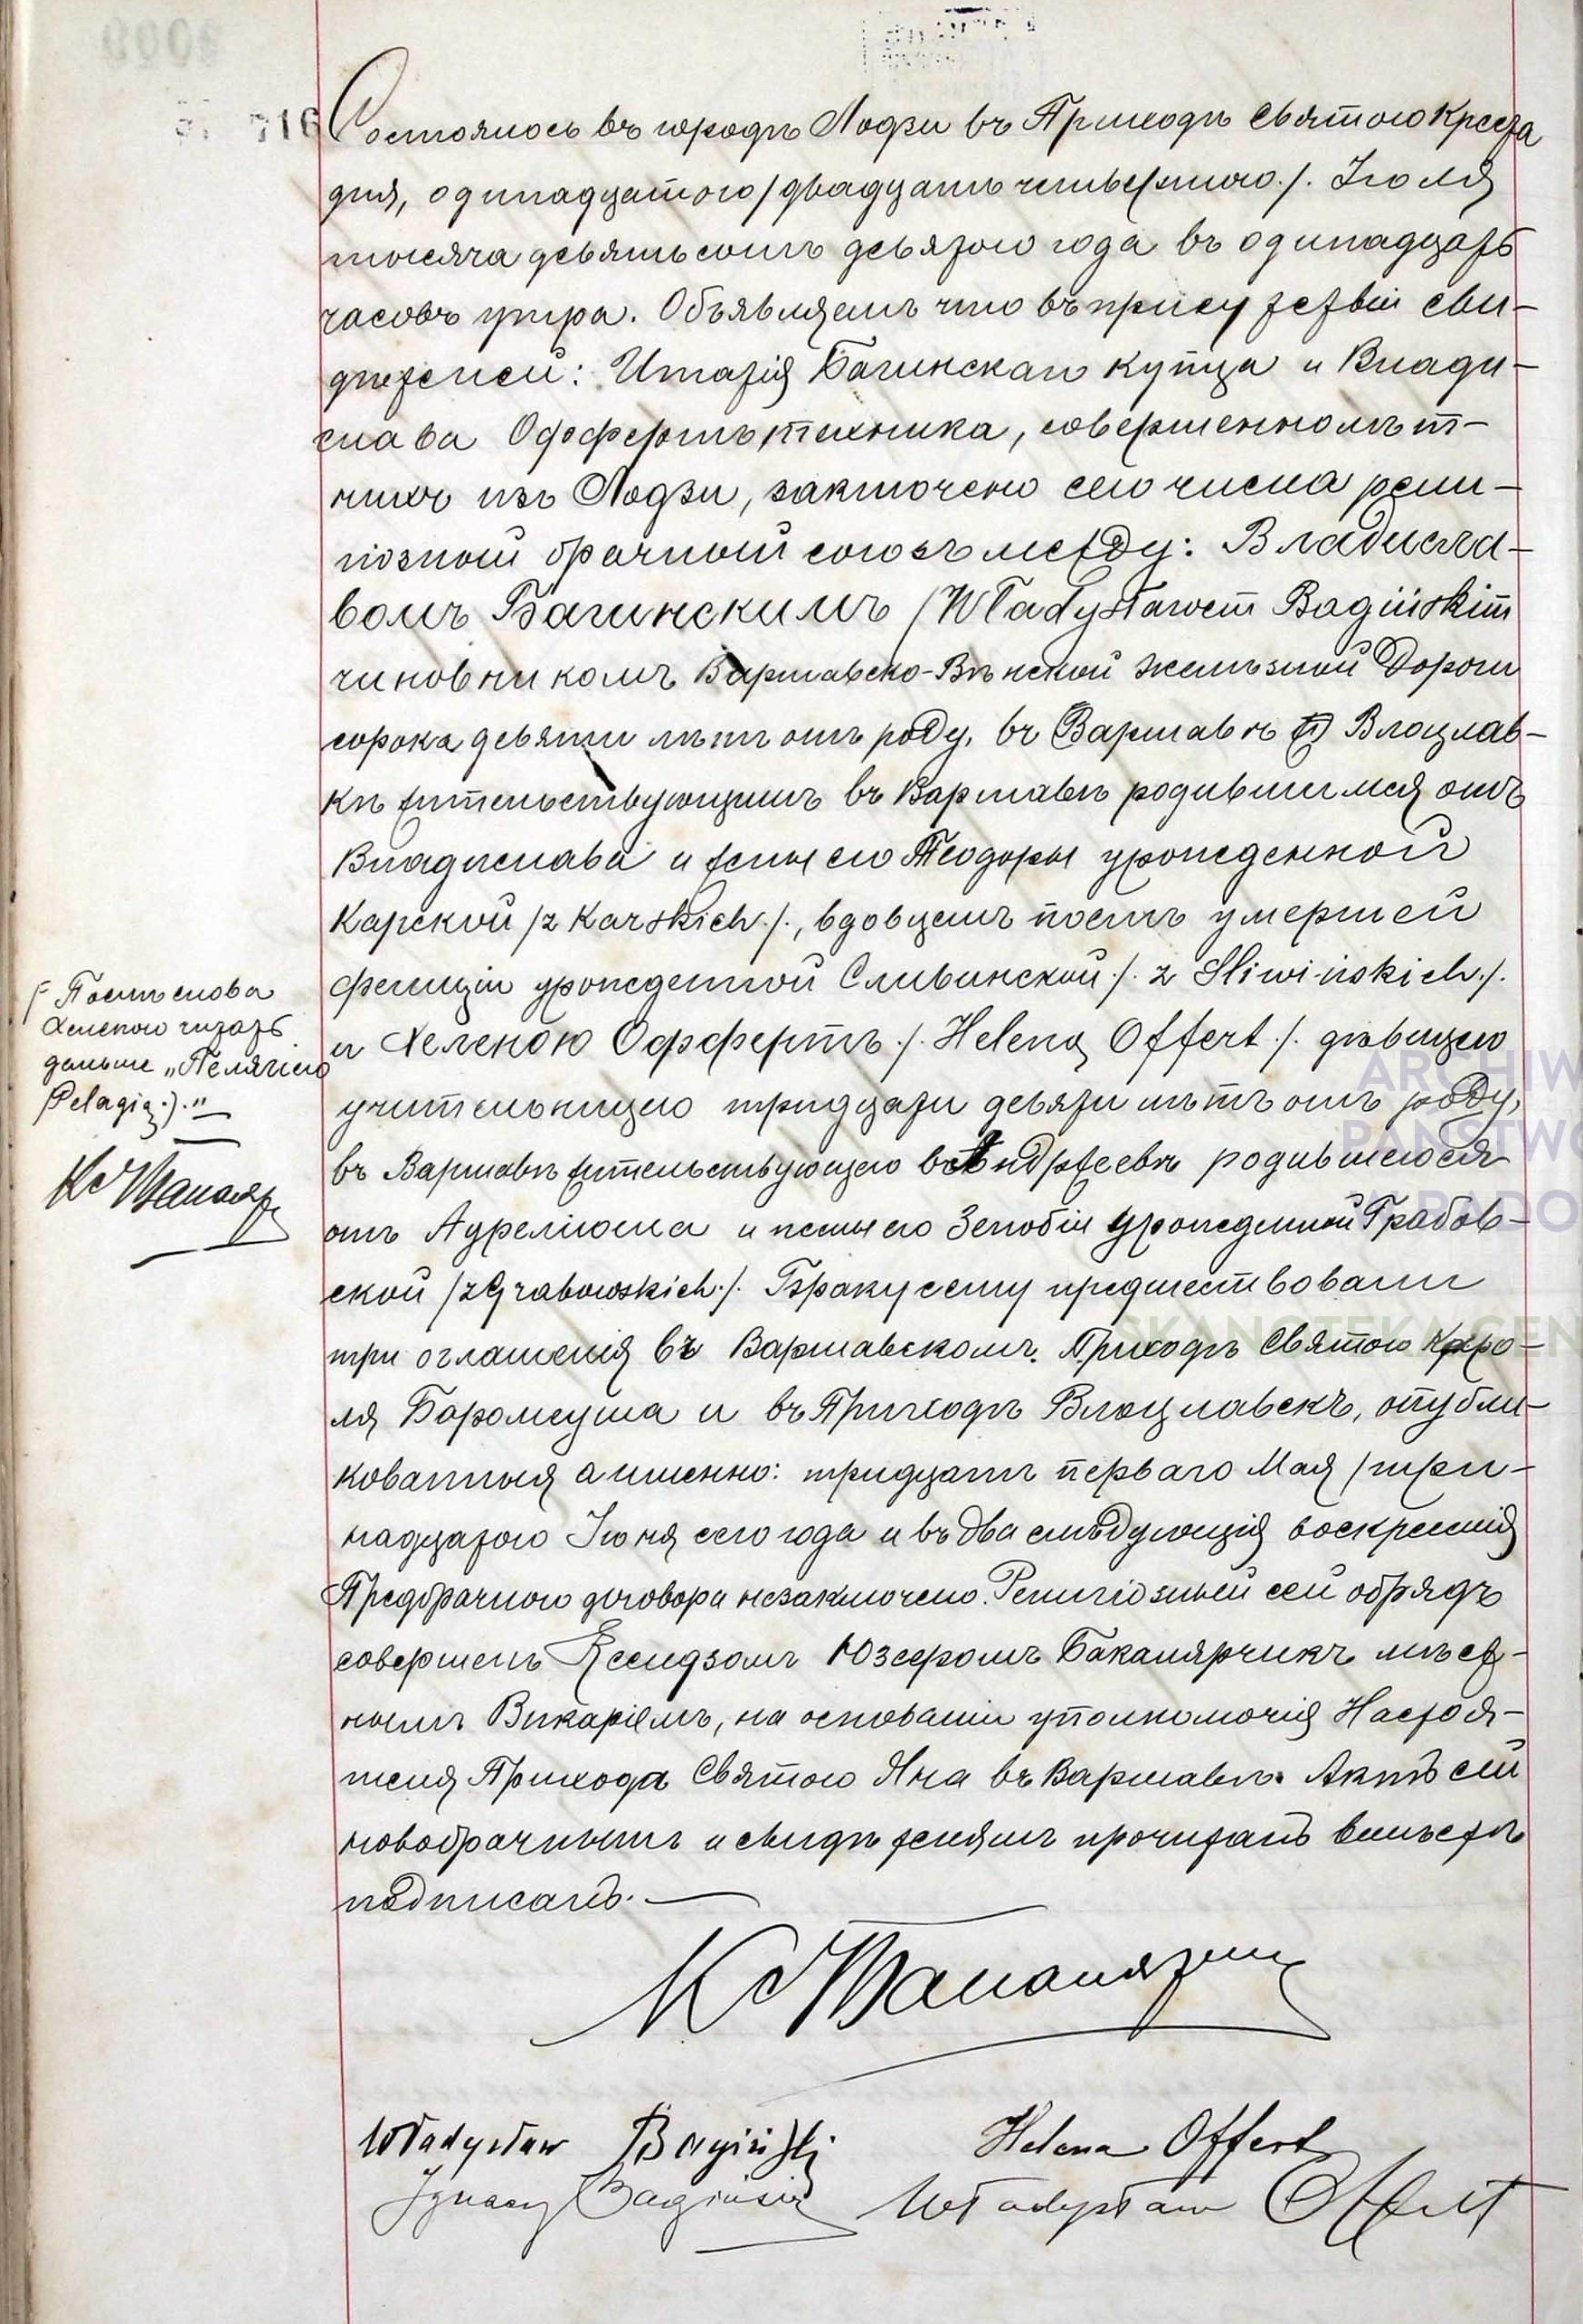 716
Состоялось въ городѣ Лодзи въ Приходѣ Святого Креста
дня, одинадцатого /двадцать четвертого./. Іюля
тысяча девятьсотъ девятого года въ одинадцать
часовъ утра. Объявляемъ что въ присутствіи сви-
дѣтелей: Игнатія Багинскаго купца и Влади-
слава Оффертъ техника, совершеннолѣт-
нихъ изъ Лодзи, заключено сего числа рели-
гіозной брачный союзъ между: Владисла-
вомъ Багинскимъ /Władysławem Bagińskim
чиновникомъ Варшавско-Вѣнской Желѣзной Дороги
сорока девяти лѣтъ отъ роду, въ Варшавѣ Влоцлав-
кѣ жительствующимъ въ Варшавѣ родившимся отъ
Владислава и жены его Теодоры урожденной
Карской /z Karskich./., вдовцемъ послѣ умершей
Фелиціи урожденной Сливинской ./. z Śliwińskich./.
и Хеленою Оффертъ ./. Heleną Offert ./. дѣвицею
учительницею тридцати девяти лѣтъ отъ роду,
въ Варшавѣ жительствующею въ Андржеевѣ родившеюся
отъ Аурелюша и жены его Зенобіи урожденной Грабов-
ской /z Grabowskich./. Браку сему предшествовали
три оглашенія въ Варшавскомъ Приходѣ Святого Каро-
ля Боромеуша и въ Приходѣ Влоцлавекъ, опубли-
кованныя а именно: тридцать перваго Мая /три-
надцатого Іюня сего года и въ два слѣдующія воскресенія
Предбрачного договора незаключено. Религіозный сей обрядъ
совершенъ Ксендзомъ Юзефомъ Бакалярчикъ мѣст-
нымъ Викаріемъ, на основаніи уполномочія Настоя-
теля Прихода Святого Яна въ Варшавѣ. Актъ сей
новобрачнымъ и свидѣтелямъ прочитанъ вмѣстѣ
подписанъ.
Послѣ слова
Хеленою читать
дальше „Пелягіею
/Pelagią./."
Władysław Bagiński Helena Offert
Ignacy Bagiński Władysław Offert
ARCHIW
PAŃSTWO
W RADO
SKANOTEKA GEN